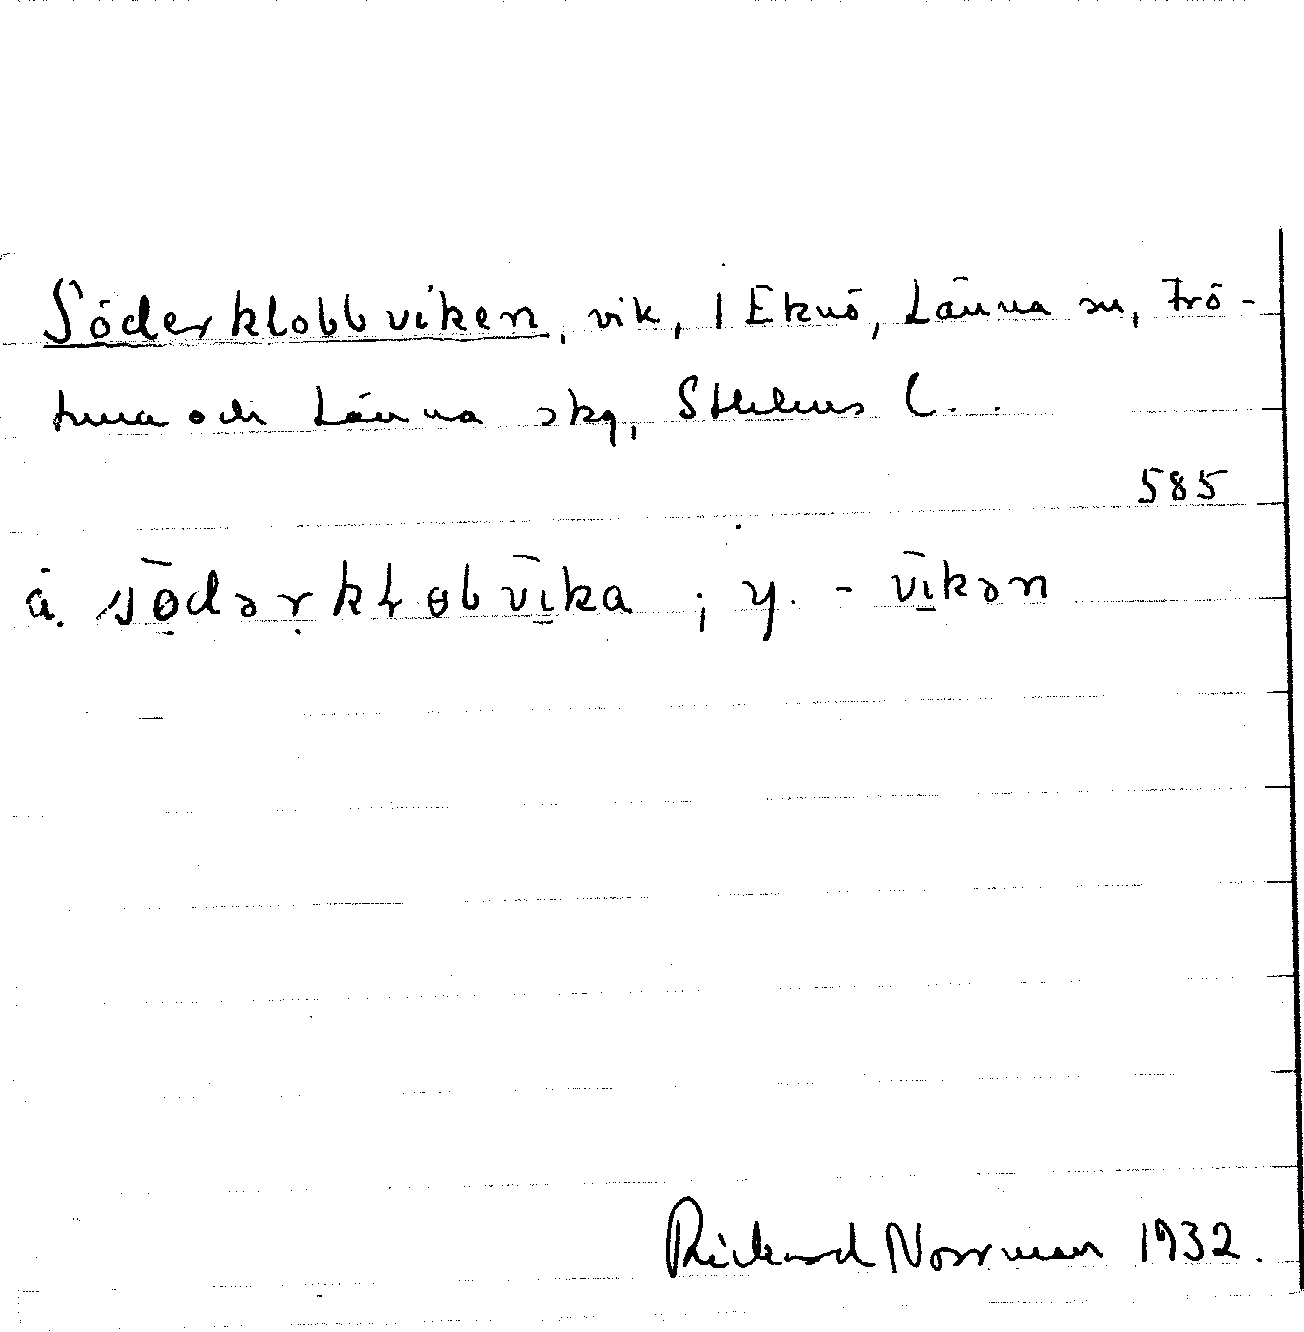 Söderklobbviken, vik, 1 Eknö, Länna sn, Frö-
tuna och Länna skg, Sthlms l.
585
ä. södərkłobvīka ; y. - vīkən
Rickard Norrman 1932.